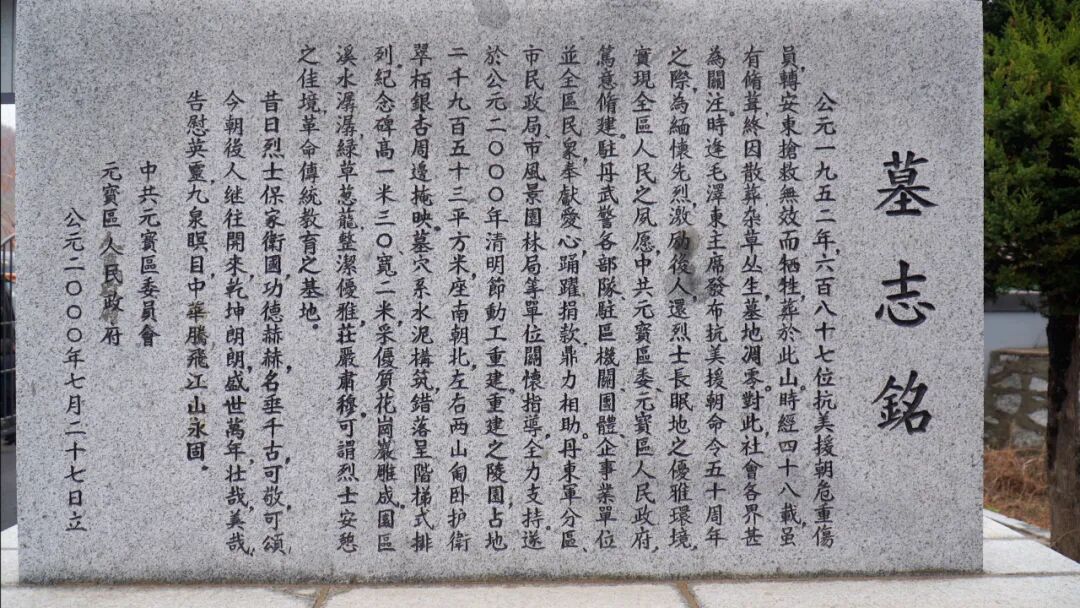 墓志銘
公元一九五二年,六百八十七位抗美援朝危重傷
員,轉安東搶救無效而牺牲,葬於此山。時經四十八載,虽
有脩葺,終因散葬杂草丛生,墓地凋零。對此,社會各界甚
為關注。時逢毛澤東主席發布抗美援朝命令五十周年
之際,為緬懷先烈,激励後人,還烈士長眠地之優雅環境,
實現全區人民之夙愿,中共元寶區委、元寶區人民政府,
篤意脩建。駐丹武警各部隊、駐區機關、團體、企事業單位
並全區民衆奉獻愛心,踊躍捐款,鼎力相助。丹東軍分區、
市民政局、市風景園林局等單位關懷指導,全力支持。遂
於公元二〇〇〇年清明節動工重建。重建之陵園,占地
二千九百五十三平方米,座南朝北,左右两山匍卧护衛,
翠栢銀杏周邊掩映。墓穴系水泥構筑,錯落呈階梯式排
列。紀念碑高一米三〇、寬二米,采優質花崗巖雕成。園區
溪水潺潺,綠草葱蘢,整潔優雅,莊嚴肅穆。可謂烈士安憩
之佳境,革命傳統教育之基地。
昔日烈士保家衛國,功德赫赫,名垂千古,可敬,可頌,
今朝後人继往開來,乾坤朗朗,盛世萬年,壮哉,美哉,
告慰英靈,九泉瞑目,中華騰飛,江山永固。
中共元寶區委員會
元寶區人民政府
公元二〇〇〇年七月二十七日立